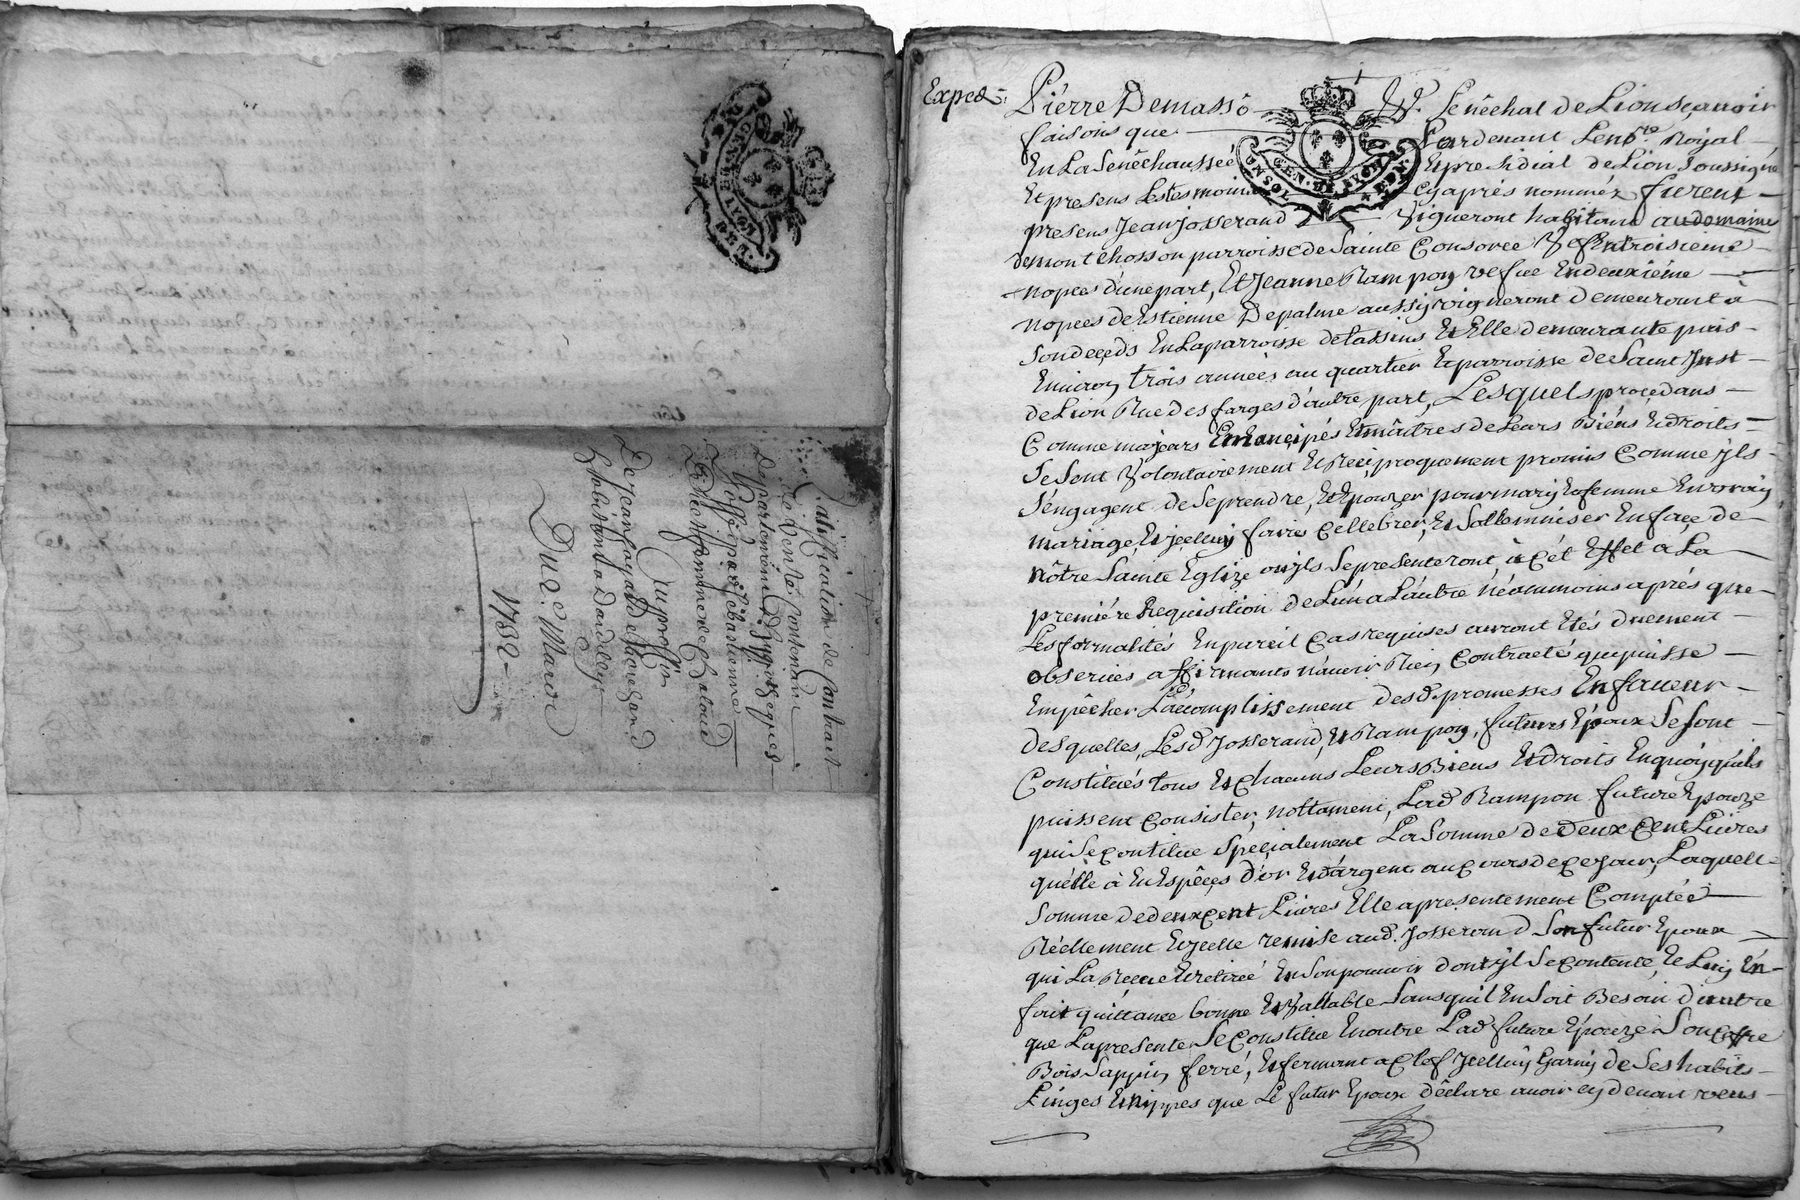 Ratification de Contract
de vente Contenant
departement d'hypoteques
Passé par Sebastienne
femme de Claud
Au proffit
De Jean
habitant a Dardilly
Du 2e. Mars
1732
Exped.
Pierre Demasso Sénéchal de Lion sçavoir
faisons que Pardevant Le no.re Royal
En La Sénéchaussée Et presidial de Lion soussigné
Et presens Les tesmoins Cy aprés nomméz furent
presens Jean Josserand Vigneront habitant au domaine
de montchosson parroisse de Sainte Consorce Vef En troisieme
nopces d'une part, Et Jeanne Rampon vefue En deuxiéme
nopces de Estienne Depalme aussy vigneront demeurant à
Son deçeds En La parroisse de tassins Et Elle demeurante puis
Environ trois années au quartier Et parroisse de Saint Just
de Lion Rue des farges d'autre part, Lesquels procedans
Comme majeurs Emançipés Et maîtres de Leurs Biéns Et droits
Se Sont Volontairement Et Reciproquement promis Comme yls
S'engagent de Se prendre, Et Epouzer pour mary Et femme En vray
mariage, Et ycelluy faire Cellebrer, Et Sollemniser En façe de
nôtre Sainte Eglize ou yls Se presenteront à Cét Effet a La
premiére Requisition de L'un a L'autre Néanmoins aprés que
Les formalités En pareil Cas requises auront Etés duement
observées affirmants n'avoir Rien Contracté qui puisse
Empêcher L'accomplissement desd. promesses En faveur
desquelles, Lesd. Josserand, Et Rampon, futurs Epoux Se sont
Constitués tous Et Chacuns Leurs Biens Et droits En quoy qu'ils
puissent Consister, nottament, Lad. Rampon future Epouze
qui Se Contitue Speçialement La Somme de deux Cent Livres
qu'elle à En Espêçes d'or Et d'argent au Cours de Ce jour, Laquelle
Somme de deux Cent Livres Elle a presentement Comptée
Réellement Et ycelle remise aud. Josserand Son futur Epoux
qui La Reçue Et retirée En Son pouvoir dont yl Se Contente, Et Luy En
fait quittance bonne Et Vallable Sans qu'il En Soit Besoin d'autre
que La presente Se Constitue En outre Lad. future Epouze Son Coffre
Bois Sappin ferré, Et fermant a Clef ycelluy Garny de Ses habits
Linges Et Nippes que Le futur Epoux déclare avoir cy devant veus